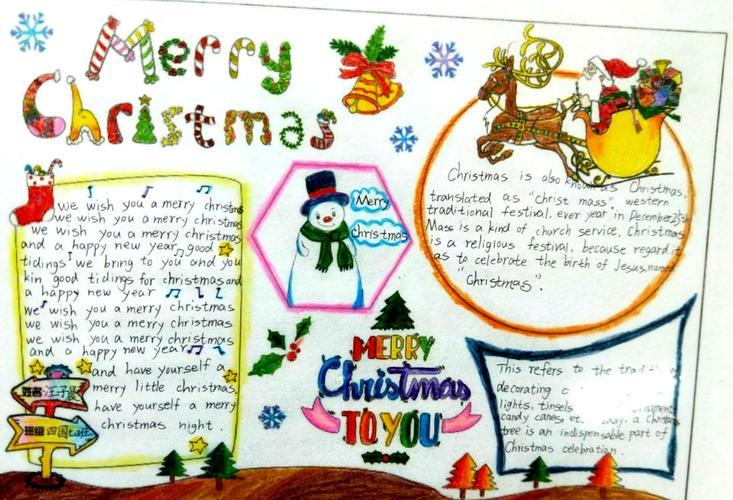 Merry
Christmas
we wish you a merry christmas
we wish you a merry christmas
we wish you a merry christmas
and a happy new year good
tidings we bring to you and you
kin good tidings for christmas and
a happy new year
we wish you a merry christmas
we wish you a merry christmas
we wish you a merry christmas
and a happy new year
and have yourself a
merry little christmas,
have yourself a merry
christmas night.
姓名:汪子
班级
Merry
christmas
MERRY
Christmas
TO YOU
Christmas is also known as Christmas,
translated as "christ mass", western
traditional festival, ever year in December 25th
Mass is a kind of church service, Christmas
is a religious festival, because regard it
as to celebrate the birth of Jesus, named
"Christmas".
This refers to the
decorating
lights, tinsels
candy canes, et. a
tree is an indispensable part of
Christmas celebration.